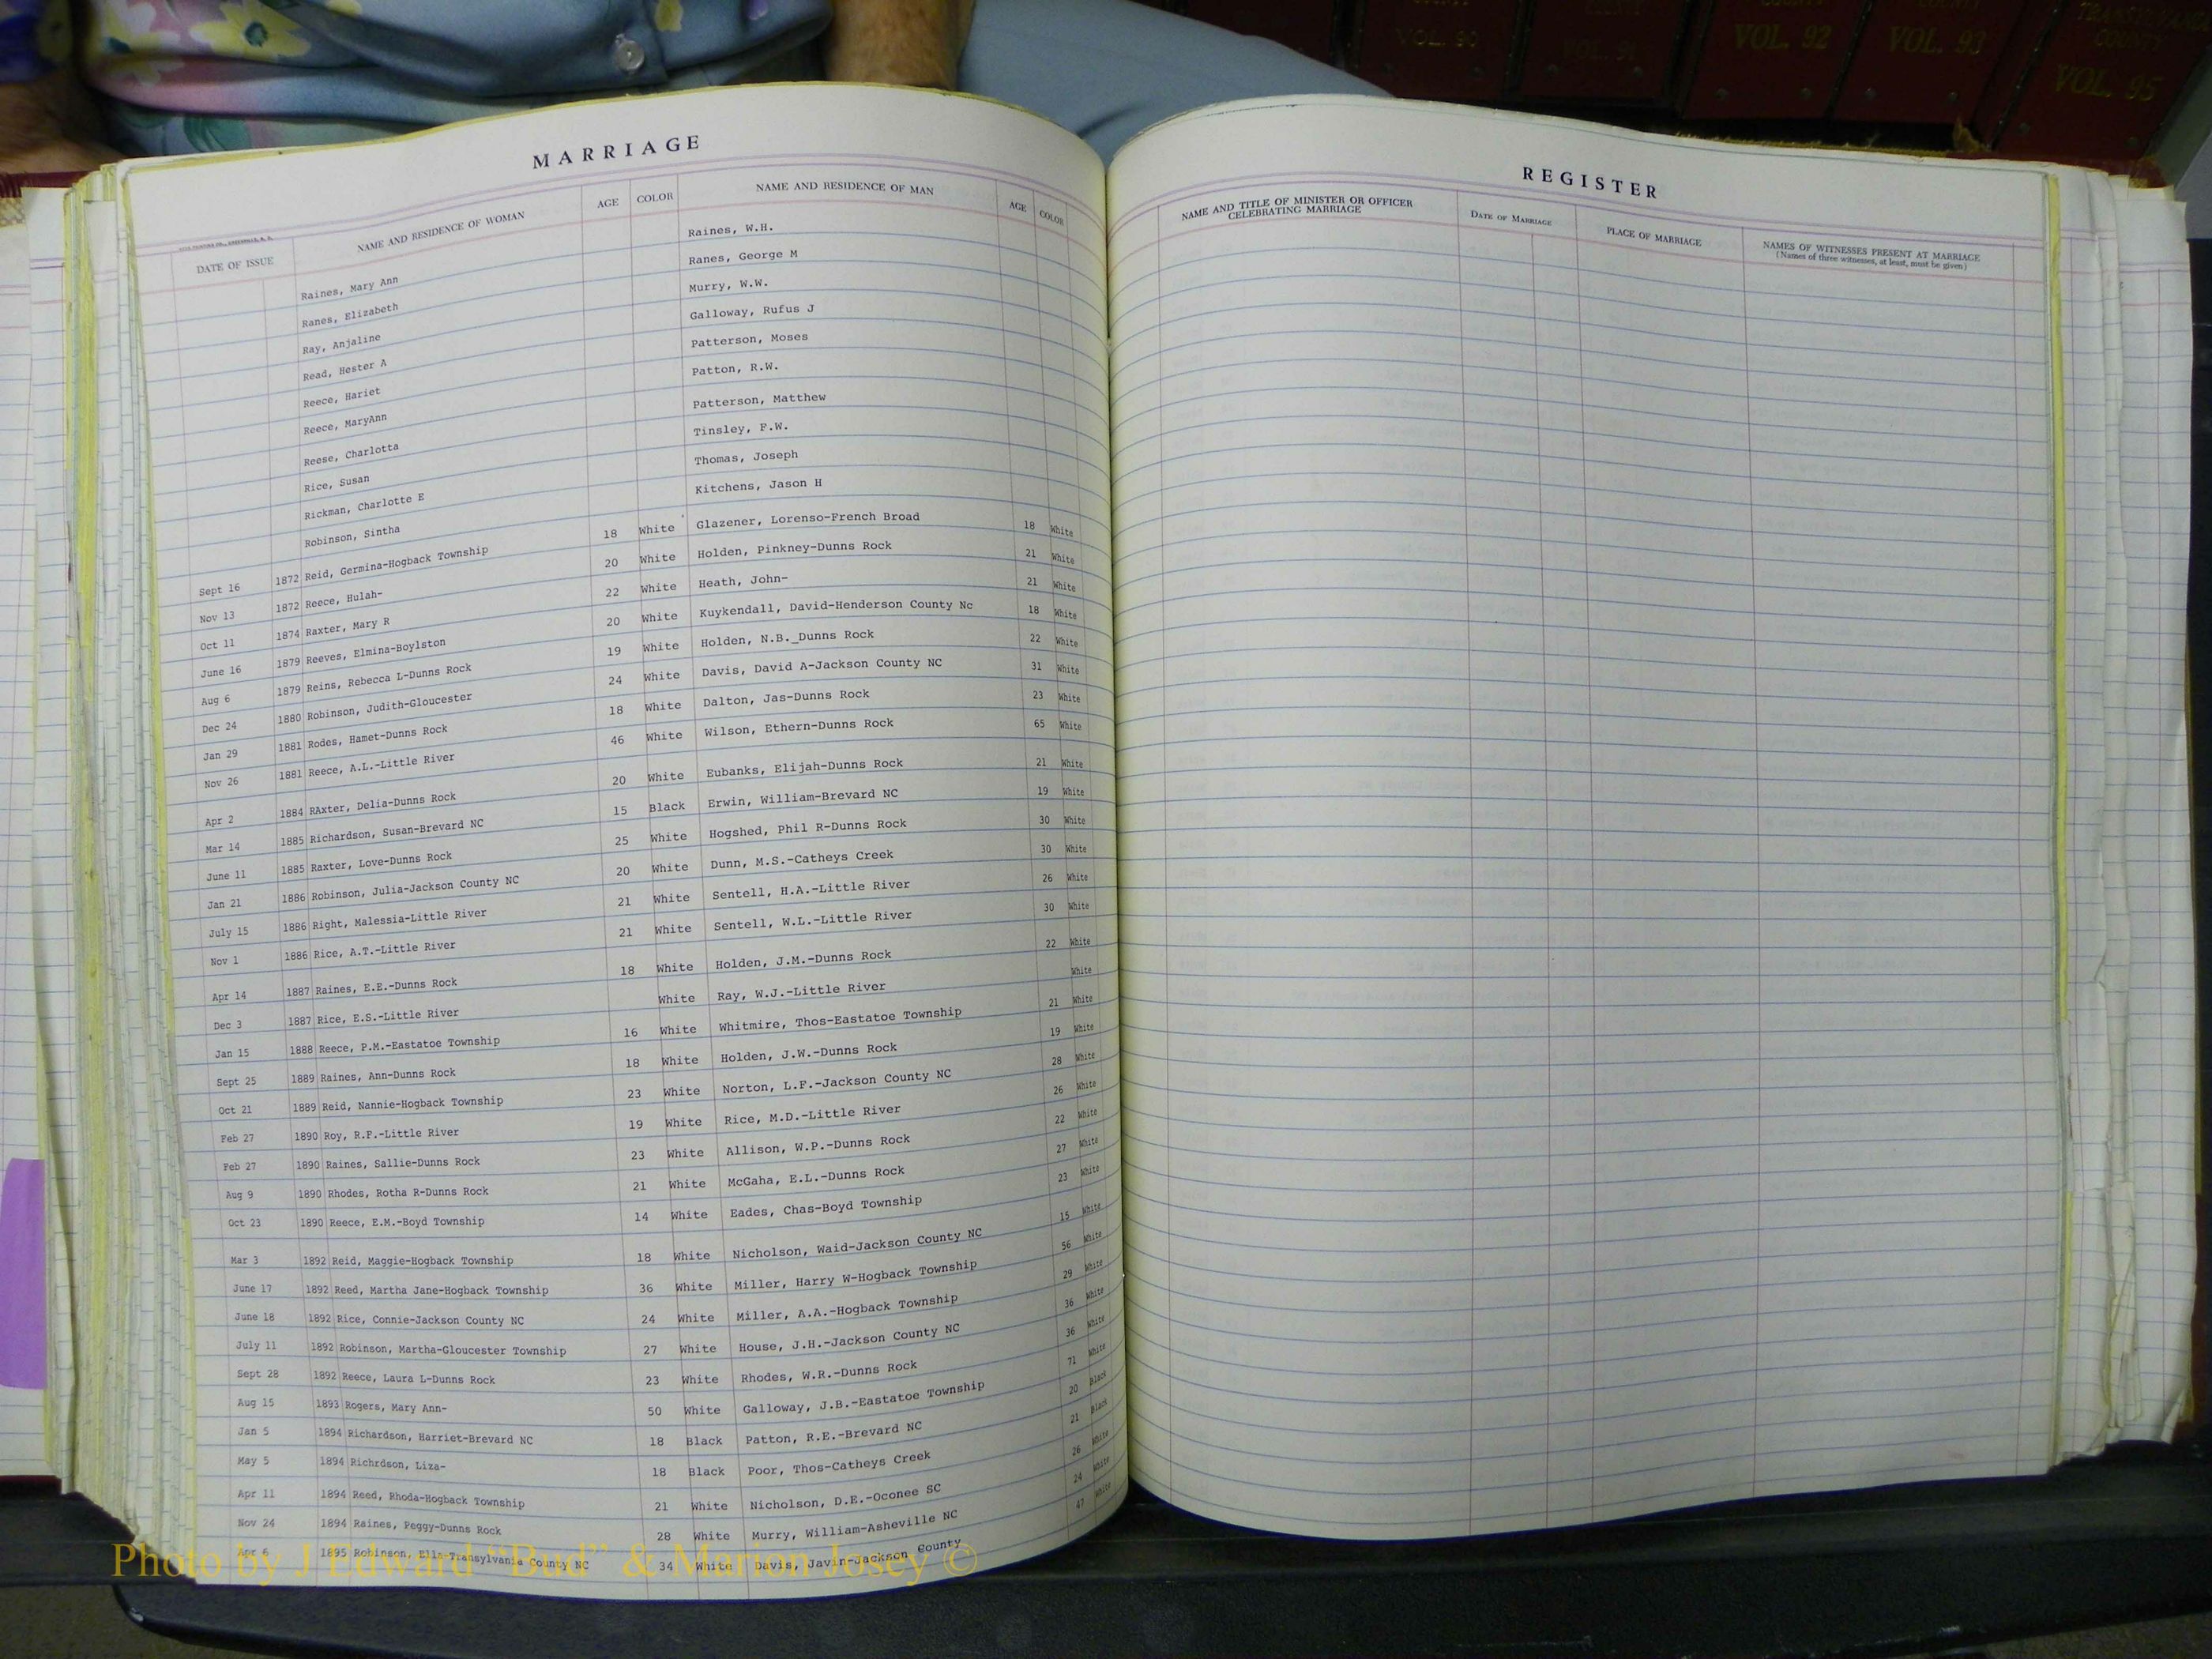 COUNTY COUNTY TRANSYLVANIA COUNTY
VOL. 90 VOL. 91 VOL. 92 VOL. 93 VOL. 95
MARRIAGE
DATE OF ISSUE NAME AND RESIDENCE OF WOMAN AGE COLOR NAME AND RESIDENCE OF MAN AGE COLOR
Raines, Mary Ann Raines, W.H.
Ranes, Elizabeth Ranes, George M
Ray, Anjaline Murry, W.W.
Read, Hester A Galloway, Rufus J
Reece, Hariet Patterson, Moses
Reece, MaryAnn Patton, R.W.
Reese, Charlotta Patterson, Matthew
Rice, Susan Tinsley, F.W.
Rickman, Charlotte E Thomas, Joseph
Robinson, Sintha Kitchens, Jason H
Sept 16 1872 Reid, Germina-Hogback Township 18 White Glazener, Lorenso-French Broad 18 White
Nov 13 1872 Reece, Hulah- 20 White Holden, Pinkney-Dunns Rock 21 White
Oct 11 1874 Raxter, Mary R 22 White Heath, John- 21 White
June 16 1879 Reeves, Elmina-Boylston 20 White Kuykendall, David-Henderson County Nc 18 White
Aug 6 1879 Reins, Rebecca L-Dunns Rock 19 White Holden, N.B._Dunns Rock 22 White
Dec 24 1880 Robinson, Judith-Gloucester 24 White Davis, David A-Jackson County NC 31 White
Jan 29 1881 Rodes, Hamet-Dunns Rock 18 White Dalton, Jas-Dunns Rock 23 White
Nov 26 1881 Reece, A.L.-Little River 46 White Wilson, Ethern-Dunns Rock 65 White
Apr 2 1884 RAxter, Delia-Dunns Rock 20 White Eubanks, Elijah-Dunns Rock 21 White
Mar 14 1885 Richardson, Susan-Brevard NC 15 Black Erwin, William-Brevard NC 19 White
June 11 1885 Raxter, Love-Dunns Rock 25 White Hogshed, Phil R-Dunns Rock 30 White
Jan 21 1886 Robinson, Julia-Jackson County NC 20 White Dunn, M.S.-Catheys Creek 30 White
July 15 1886 Right, Malessia-Little River 21 White Sentell, H.A.-Little River 26 White
Nov 1 1886 Rice, A.T.-Little River 21 White Sentell, W.L.-Little River 30 White
Apr 14 1887 Raines, E.E.-Dunns Rock 18 White Holden, J.M.-Dunns Rock 22 White
Dec 3 1887 Rice, E.S.-Little River White Ray, W.J.-Little River White
Jan 15 1888 Reece, P.M.-Eastatoe Township 16 White Whitmire, Thos-Eastatoe Township 21 White
Sept 25 1889 Raines, Ann-Dunns Rock 18 White Holden, J.W.-Dunns Rock 19 White
Oct 21 1889 Reid, Nannie-Hogback Township 23 White Norton, L.F.-Jackson County NC 28 White
Feb 27 1890 Roy, R.F.-Little River 19 White Rice, M.D.-Little River 26 White
Feb 27 1890 Raines, Sallie-Dunns Rock 23 White Allison, W.P.-Dunns Rock 22 White
Aug 9 1890 Rhodes, Rotha R-Dunns Rock 21 White McGaha, E.L.-Dunns Rock 27 White
Oct 23 1890 Reece, E.M.-Boyd Township 14 White Eades, Chas-Boyd Township 23 White
Mar 3 1892 Reid, Maggie-Hogback Township 18 White Nicholson, Waid-Jackson County NC 15 White
June 17 1892 Reed, Martha Jane-Hogback Township 36 White Miller, Harry W-Hogback Township 56 White
June 18 1892 Rice, Connie-Jackson County NC 24 White Miller, A.A.-Hogback Township 29 White
July 11 1892 Robinson, Martha-Gloucester Township 27 White House, J.H.-Jackson County NC 36 White
Sept 28 1892 Reece, Laura L-Dunns Rock 23 White Rhodes, W.R.-Dunns Rock 36 White
Aug 15 1893 Rogers, Mary Ann- 50 White Galloway, J.B.-Eastatoe Township 71 White
Jan 5 1894 Richardson, Harriet-Brevard NC 18 Black Patton, R.E.-Brevard NC 20 Black
May 5 1894 Richrdson, Liza- 18 Black Poor, Thos-Catheys Creek 21 Black
Apr 11 1894 Reed, Rhoda-Hogback Township 21 White Nicholson, D.E.-Oconee SC 26 White
Nov 24 1894 Raines, Peggy-Dunns Rock 28 White Murry, William-Asheville NC 24 White
Apr 6 1895 Robinson, Ella-Transylvania County NC 34 White Davis, Javin-Jackson County 47 White
REGISTER
NAME AND TITLE OF MINISTER OR OFFICER CELEBRATING MARRIAGE DATE OF MARRIAGE PLACE OF MARRIAGE NAMES OF WITNESSES PRESENT AT MARRIAGE
(Names of three witnesses, at least, must be given)
Photo by J Edward "Bud" & Marion Josey ©